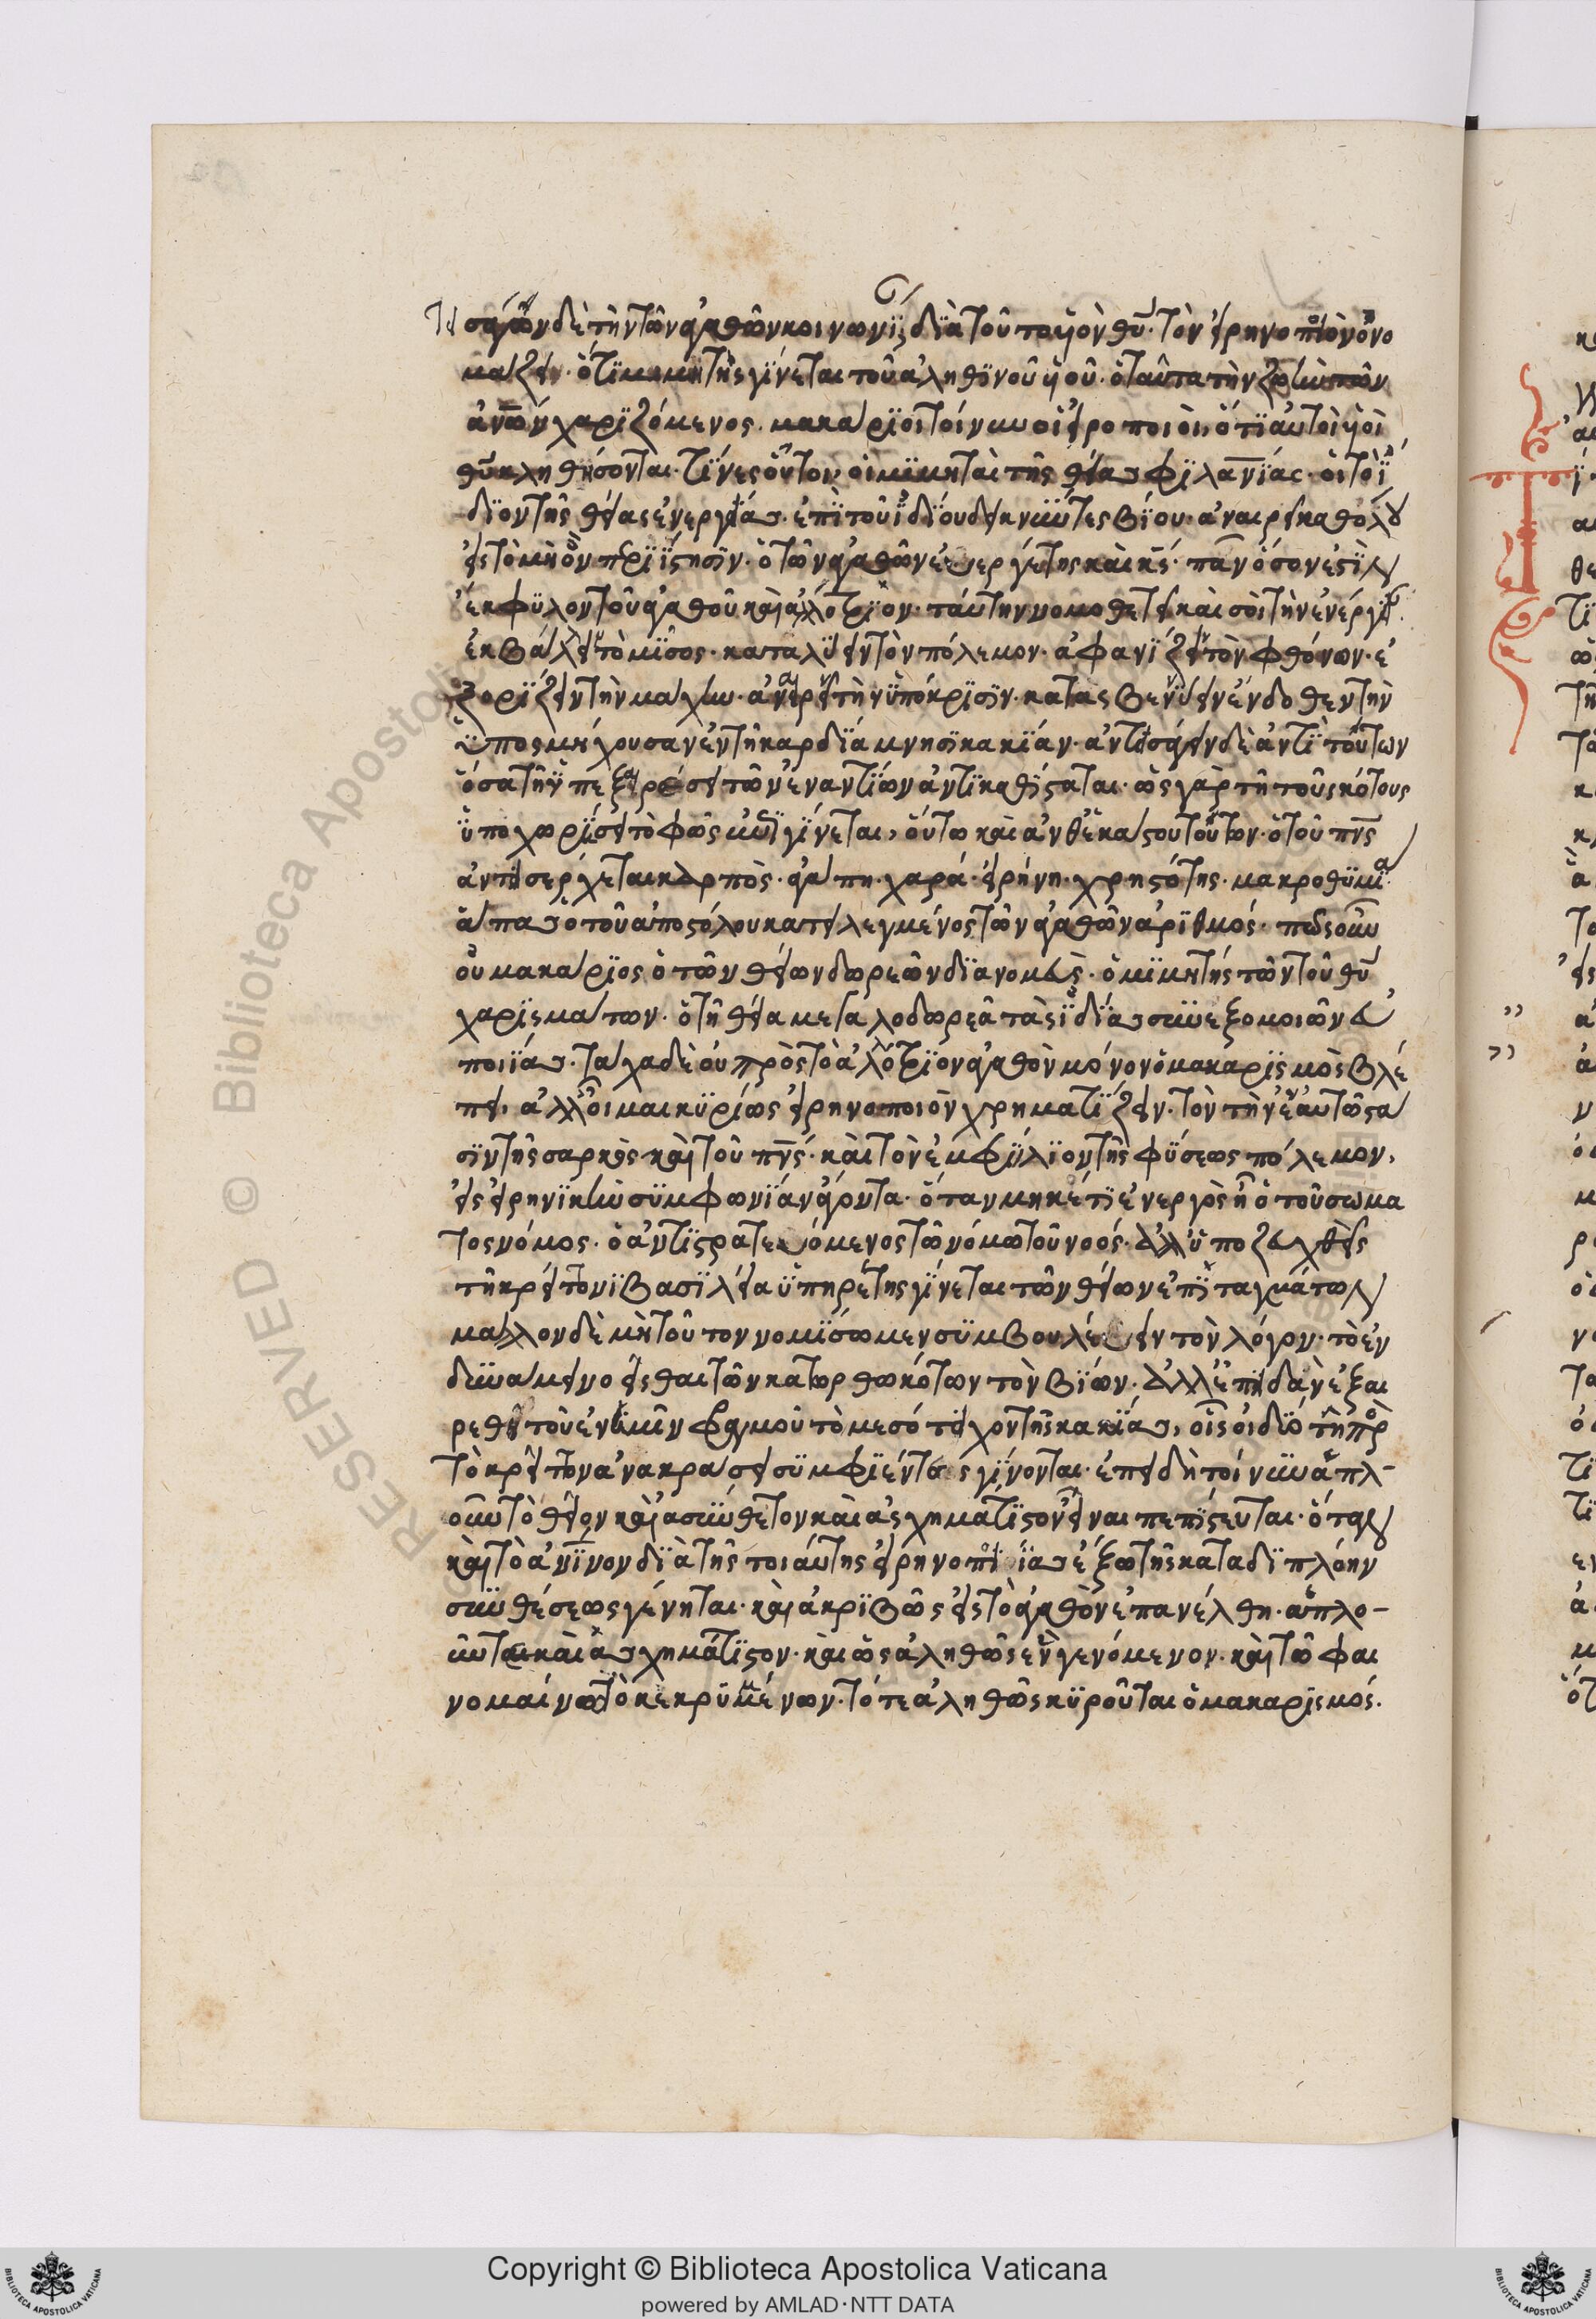 εἰσάγων δὲ τὴν τῶν ἀγαθῶν κοινωνίαν, διὰ τοῦτο υἱὸν θυ· τὸν εἰρηνοποιὸν ὀνο
μάζει· ὅτι μιμητὴς γίνεται τοῦ ἀληθινοῦ υἱοῦ· ὁ ταῦτα τὴν ζωὴν τῶν
ἀνων χαριζόμενος. μακάριοι τοίνυν οἱ εἰρηοποιοὶ, ὅτι αὐτοὶ υἱοὶ
θυ κληθήσονται. τίνες οὗτοι, οἱ μιμηταὶ τῆς θείας φιλανίας· οἱ τὸ ἴ
διον τῆς θείας ἐνεργείας. ἐπὶ τοῦ ἰδίου δεικνύντες βίου. ἀναιρεῖ καθόλου
εἰς τὸ μὴ ὂν περιίστησιν. ὁ τῶν ἀγαθῶν εὐεργέτης καὶ κς· πᾶν ὅσον ἐστὶν
ἔκφυλον τοῦ ἀγαθοῦ καὶ ἀλλότριον. ταύτην νομοθετεῖ καὶ σοὶ τὴν ἐνέργειαν.
ἐκβάλλειν τὸ μῖσος. καταλύειν τὸν πόλεμον. ἀφανίζειν τὸν φθόνον. ἐ
ξορίζειν τὴν μάχην. ἀναιρεῖν τὴν ὑπόκρισιν. κατασβεννύειν ἔνδοθεν τὴν
ὑποσμήχουσαν ἐν τῇ καρδία μνησικακίαν. ἀντεισάγειν δὲ ἀντὶ τούτων
ὅσα τῇ ὑπεξαιρέσει τῶν ἐναντίων ἀντικαθίσταται. ὡς γὰρ τῇ τοῦ σκότους
ὑποχωρήσει τὸ φῶς ἀντιγίνεται, οὕτω καὶ ἀνθ' ἑκάστου τούτων. ὁ τοῦ πνς
ἀντεισέρχεται καρπὸς. ἀγάπη. χαρά. εἰρήνη. χρηστότης. μακροθυμία.
ἅπας ὁ τοῦ ἀποστόλου κατειλεγμένος τῶν ἀγαθῶν ἀριθμός. πῶς οὖν
οὐ μακάριος ὁ τῶν θείων δωρεῶν διανομεύς. ὁ μιμητής τῶν τοῦ θυ
χαρισμάτων. ὁ τῇ θεία μεγαλοδωρεᾶ τὰς ἰδίας συνεξομοιῶν εὐ
ποιίας. τάχα δὲ οὐ πρὸς τὸ ἀλλότριον ἀγαθὸν μόνον ὁ μακαρισμὸς βλέ
πει, ἀλλ' οἶμαι κυρίως εἰρηνοποιὸν χρηματίζειν. τὸν τὴν ἐν ἑαυτῶ στά
σιν τῆς σαρκὸς καὶ τοῦ πνς. καὶ τὸν ἐμφύλιον τῆς φύσεως πόλεμον,
εἰς εἰρηνικὴν συμφωνίαν ἄγοντα. ὅταν μηκέτι ἐνεργὸς ἦ ὁ τοῦ σώμα
τος νόμος. ὁ ἀντιστρατευόμενος τῶ νόμω τοῦ νοός. ἀλλ' ὑποζευχθεὶς
τῇ κρείττονι βασιλεία ὑπηρέτης γίνεται τῶν θείων ἐπιταγμάτων
μᾶλλον δὲ μὴ τοῦτον νομίσωμεν συμβουλεύειν τὸν λόγον. τὸ ἐν
δυνάμει νοεῖσθαι τῶν κατωρθωκότων τὸν βίων. ἀλλ' ἐπειδὰν ἐξαι
ρεθῆ τοῦ ἐν ἡμῖν φραγμοῦ τὸ μεσότειχον τῆς κακίας, εἷς οἱ δύο τῇ πρὸς
τὸ κρεῖττον ἀνακράσει συμφυέντες γίνονται. ἐπειδὴ τοίνυν ἁπλ-
οῦν τὸ θεῖον καὶ ἀσύνθετον καὶ ἀσχημάτιστον εἶναι πεπίστευται. ὅταν
καὶ τὸ ἀνινον διὰ τῆς τοιαύτης εἰρηνοποιίας ἔξω τῆς κατὰ διπλόην
συνθέσεως γένηται. καὶ ἀκριβῶς εἰς τὸ ἀγαθὸν ἐπανέλθη. ἁπλο-
ῦν τε καὶ ἀσχημάτιστον. καὶ ὡς ἀληθῶς ἓν γενόμενον. καὶ τῶ φαι
νομαίνω τὸ κεκρυμένων. τότε ἀληθῶς κυροῦται ὁ μακαρισμός.
Copyright © Biblioteca Apostolica Vaticana
powered by AMLAD·NTT DATA